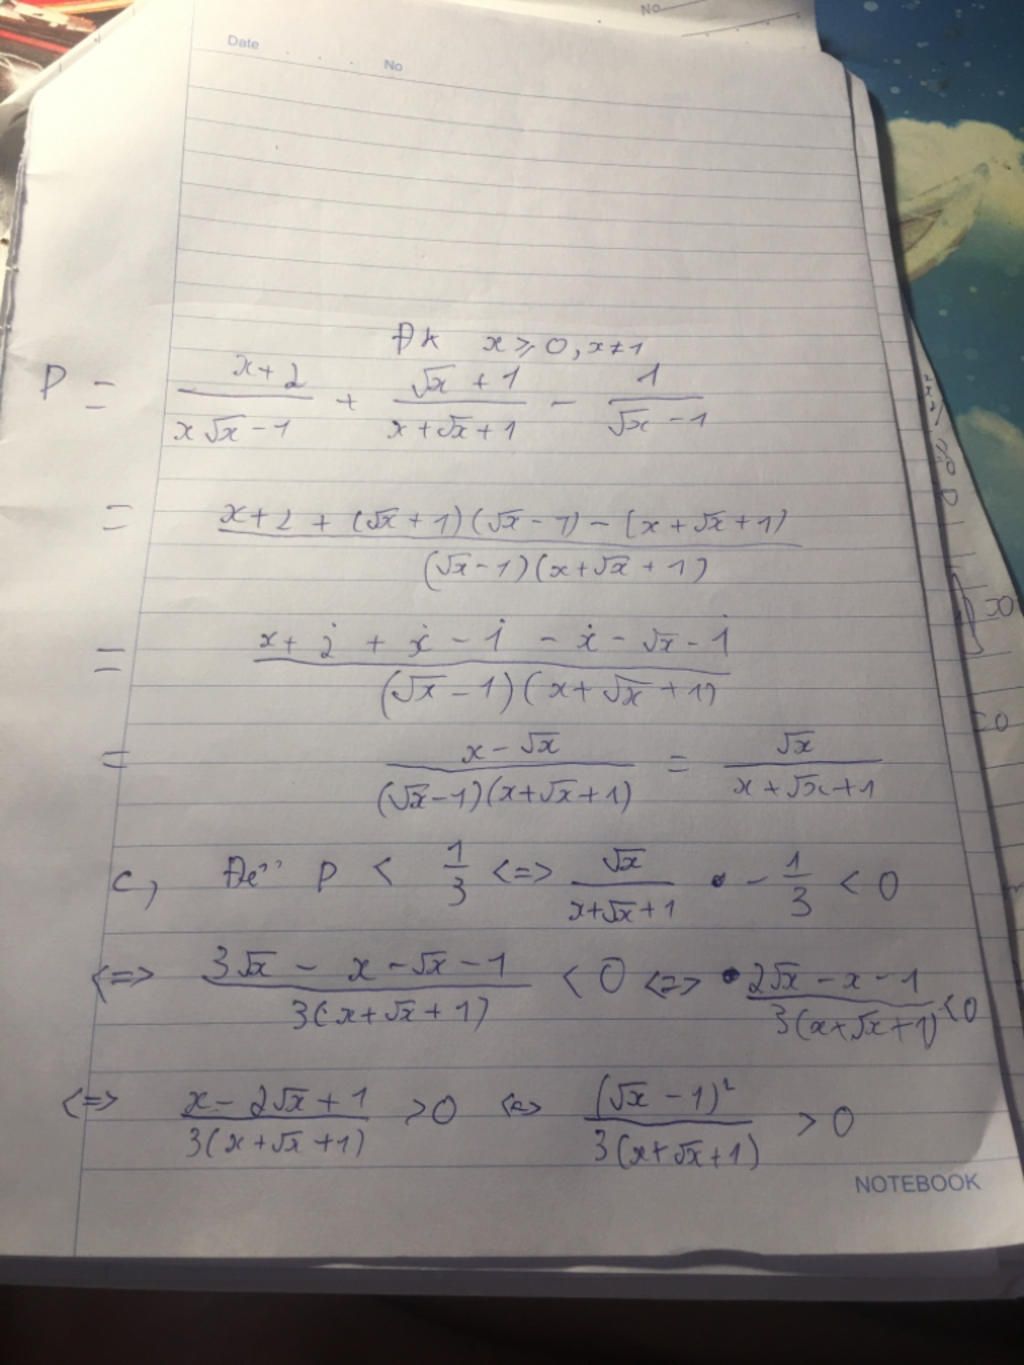 No
Date
No
ĐK x ⩾ 0, x ≠ 1
P = \frac{x+2}{x√x - 1} + \frac{√x + 1}{x + √x + 1} - \frac{1}{√x - 1}
= \frac{x+2 + (√x + 1)(√x - 1) - (x + √x + 1)}{(√x - 1)(x + √x + 1)}
= \frac{x + 2 + x - 1 - x - √x - 1}{(√x - 1)(x + √x + 1)}
= \frac{x - √x}{(√x - 1)(x + √x + 1)} = \frac{√x}{x + √x + 1}
c, Để P < \frac{1}{3} <=> \frac{√x}{x + √x + 1} - \frac{1}{3} < 0
<=> \frac{3√x - x - √x - 1}{3(x + √x + 1)} < 0 <=> \frac{2√x - x - 1}{3(x + √x + 1)} < 0
<=> \frac{x - 2√x + 1}{3(x + √x + 1)} > 0 <=> \frac{(√x - 1)²}{3(x + √x + 1)} > 0
NOTEBOOK